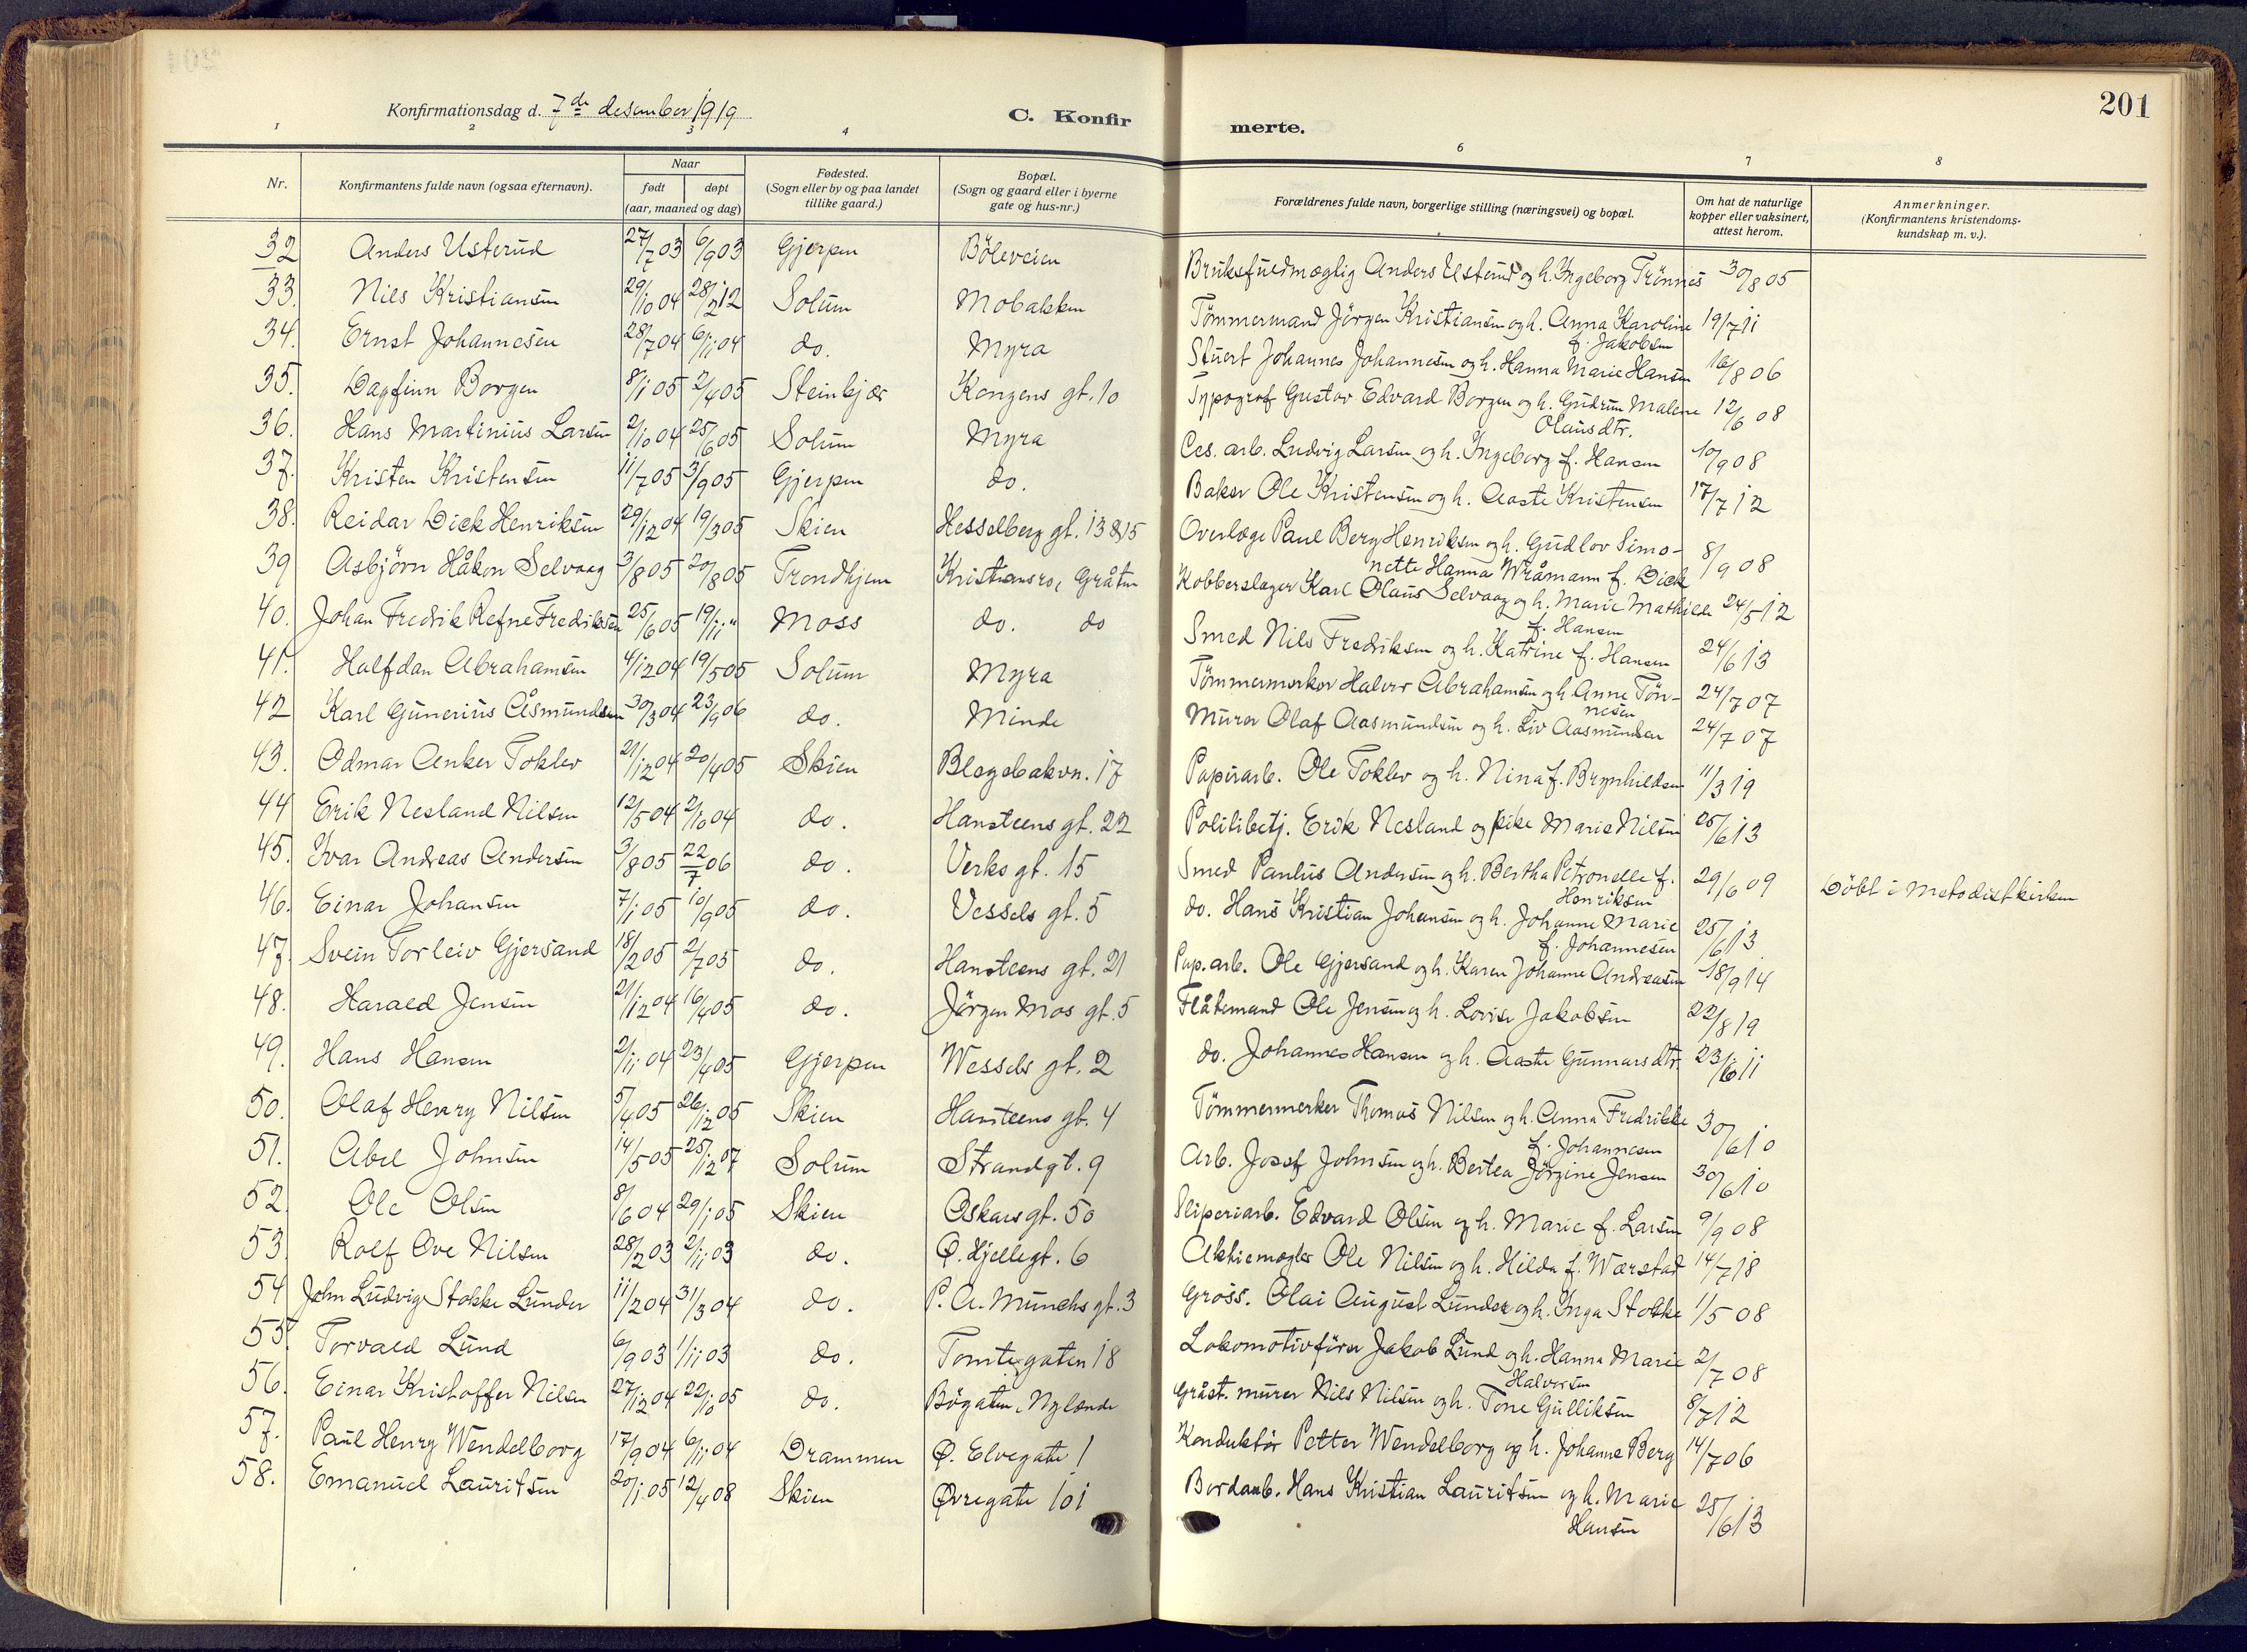 201
Konfirmationsdag d. 7de desember 1919
C. Konfir
merte.
1 2 3 4 6 7 8
Nr. Konfirmantens fulde navn (ogsaa efternavn). Naar født døpt (aar, maaned og dag) Fødested. (Sogn eller by og paa landet tillike gaard.) Bopæl. (Sogn og gaard eller i byerne gate og hus-nr.) Forældrenes fulde navn, borgerlige stilling (næringsvei) og bopæl. Om hat de naturlige kopper eller vaksinert, attest herom. Anmerkninger. (Konfirmantens kristendoms-kundskap m. v.).
32 Anders Usterud 27/7 03 6/9 03 Gjerpen Böleveien Bruksfuldmægtig Anders Usterud og h. Ingeborg Trönnes 30/8 05
33. Nils Kristiansen 29/10 04 28/2 12 Solum Mobakken Tömmermand Jörgen Kristiansen og h. Anna Karoline f. Jakobsen 19/7 11
34. Ernst Johannesen 28/7 04 6/11 04 do. Myra Stuert Johannes Johannesen og h. Hanna Marie Hansen 16/8 06
35. Dagfinn Borgen 8/1 05 2/4 05 Steinkjær Kongens gt. 10 Typograf Gustav Edvard Borgen og h. Gudrun Malene Olausdtr. 12/6 08
36. Hans Martinius Larsen 2/10 04 25/6 05 Solum Myra Ces. arb. Ludvig Larsen og h. Ingeborg f. Hansen 10/9 08
37. Kristen Kristensen 11/7 05 3/9 05 Gjerpen do. Baker Ole Kristensen og h. Aaste Kristensen 17/7 12
38. Reidar Dick Henriksen 29/12 04 19/3 05 Skien Hesselberg gt. 13 & 15 Overlæge Paul Berg Henriksen og h. Gudlov Simonette Hanna Wråmann f. Dick 8/9 08
39 Asbjörn Håkon Selvaag 3/8 05 20/8 05 Trondhjem Kristiansro, Gråtn Kobberslager Karl Olaus Selvaag og h. Marie Mathilde f. Hansen 24/5 12
40. Johan Fredrik Refne Fredriksen 25/6 05 19/11 " Moss do. do Smed Nils Fredriksen og h. Katrine f. Hansen 24/6 13
41. Halfdan Abrahamsen 4/12 04 19/5 05 Solum Myra Tömmermerker Halvor Abrahamsen og h. Anne Tönnesen 24/7 07
42 Karl Gunerius Åsmundsen 30/3 04 23/9 06 do. Minde Murer Olaf Aasmundsen og h. Liv Aasmundsen 24/7 07
43. Odmar Anker Toklev 21/12 04 20/4 05 Skien Blegebakvn. 17 Papirarb. Ole Toklev og h. Nina f. Brynhildsen 11/3 19
44 Erik Nesland Nilsen 12/5 04 2/10 04 do. Hansteens gt. 22 Politibetj. Erik Nesland og pike Marie Nilsen 25/6 13
45. Ivar Andreas Andersen 3/8 05 22/7 06 do. Verks gt. 15 Smed Paulus Andersen og h. Bertha Petronelle f. Henriksen 29/6 09 Döbt i Metodistkirken
46. Einar Johansen 7/1 05 10/9 05 do. Vessels gt. 5 do. Hans Kristian Johansen og h. Johanne Marie f. Johannesen 25/6 13
47. Svein Torleiv Gjersand 18/2 05 2/7 05 do. Hansteens gt. 21 Pap. arb. Ole Gjersand og h. Karen Johanne Andreasen 18/9 14
48. Harald Jensen 21/12 04 16/4 05 do. Jörgen Mos gt. 5 Flåtemand Ole Jensen og h. Lovise Jakobsen 22/8 19
49. Hans Hansen 2/11 04 23/4 05 Gjerpen Wessels gt. 2 do. Johannes Hansen og h. Aaste Gunnarsdtr. 23/6 11
50. Olaf Henry Nilsen 5/4 05 26/12 05 Skien Hansteens gt. 4 Tömmermerker Thomas Nilsen og h. Anna Fredrikke f. Johannesen 30/6 10
51. Abel Johnsen 14/5 05 25/12 07 Solum Strandgt. 9 Arb. Josef Johnsen og h. Bertea Jörgine Jensen 30/6 10
52. Ole Olsen 8/6 04 29/1 05 Skien Oskars gt. 50 Sliperiarb. Edvard Olsen og h. Marie f. Larsen 9/9 08
53. Rolf Ove Nilsen 28/2 03 2/11 03 do. Ø. Hjellegt. 6 Aktiemægler Ole Nilsen og h. Hilda f. Wærstad 14/7 18
54 John Ludvig Stokke Lunder 11/2 04 31/3 04 do. P. A. Munchs gt. 3 Gross. Olai August Lunder og h. Inga Stokke 1/5 08
55. Torvald Lund 6/9 03 1/11 03 do. Tomtegaten 18 Lokomotivförer Jakob Lund og h. Hanna Marie Halvorsen 2/7 08
56. Einar Kristoffer Nilsen 27/12 04 22/10 05 do. Bögaten, Nylænde Gråst. murer Nils Nilsen og h. Tone Gulliksen 8/7 12
57. Paul Henry Wendelborg 17/9 04 6/11 04 Drammen Ø. Elvegate 1 Konduktør Petter Wendelborg og h. Johanne Berg 14/7 06
58. Emanuel Lauritsen 20/1 05 12/4 08 Skien Øvregate 101 Bordarb. Hans Kristian Lauritsen og h. Marie Hansen 25/6 13